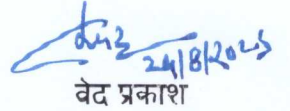 24/8/2023
वेद प्रकाश